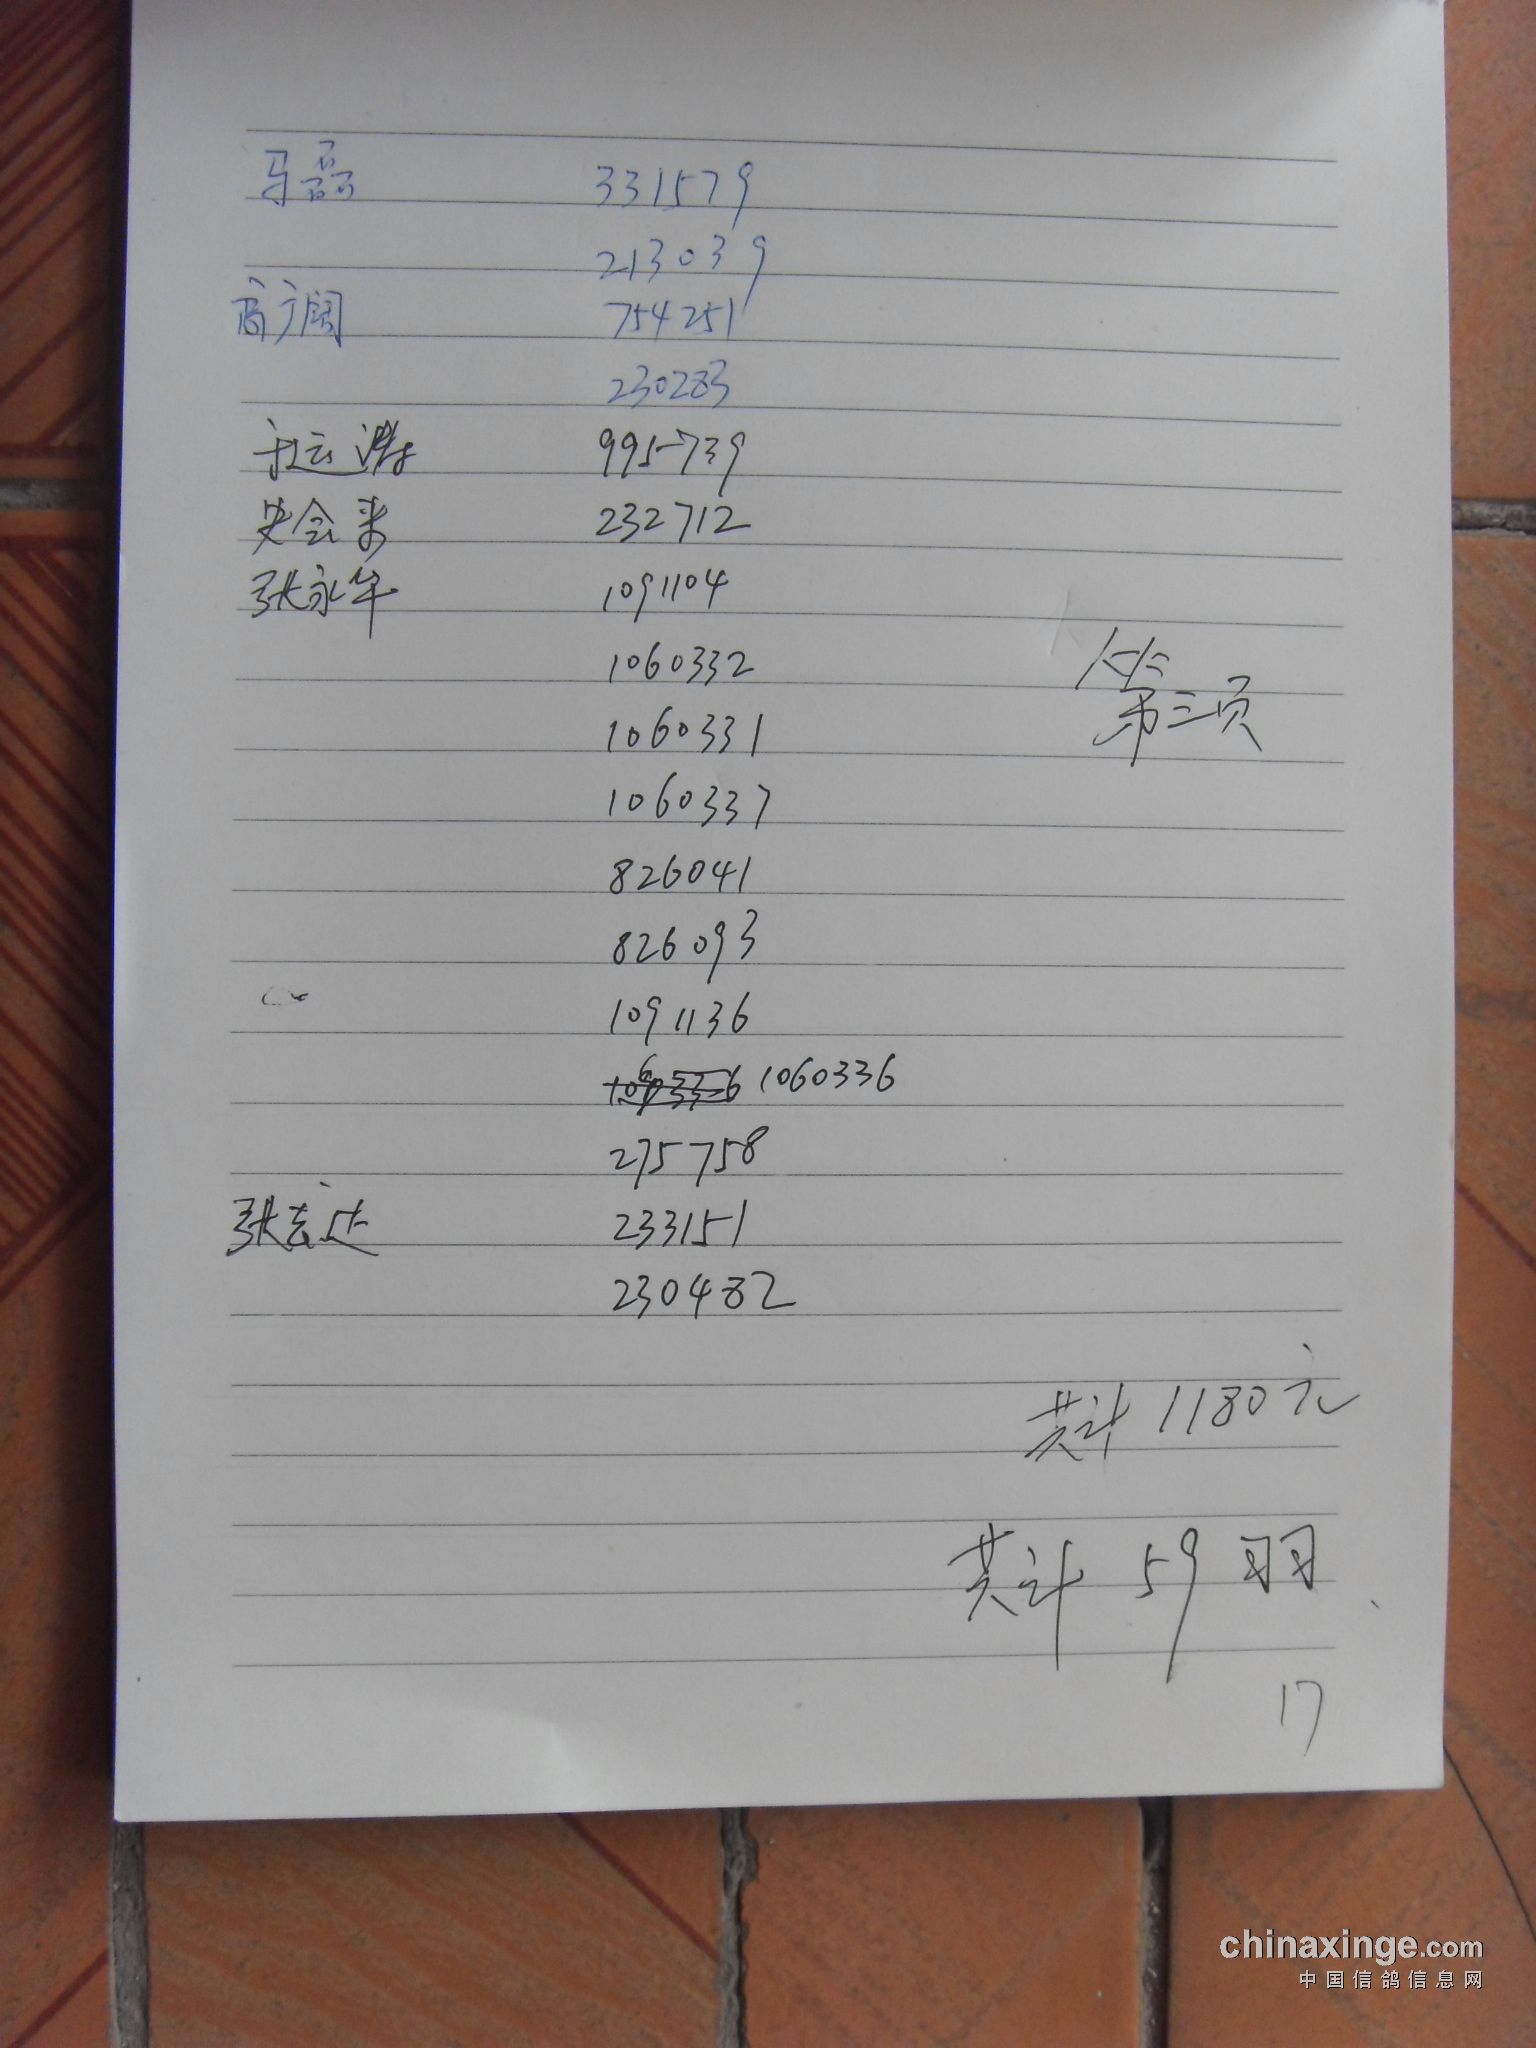 马磊 331579
213039
商广阔 754251
230283
于运涛 995739
史会来 232712
张永华 1091104
1060332
第三页
1060331
1060337
826041
826093
1091136
1060336
275758
张志达 233151
230482
共计 1180元
共计 59 羽
17
chinaxinge.com
中国信鸽信息网